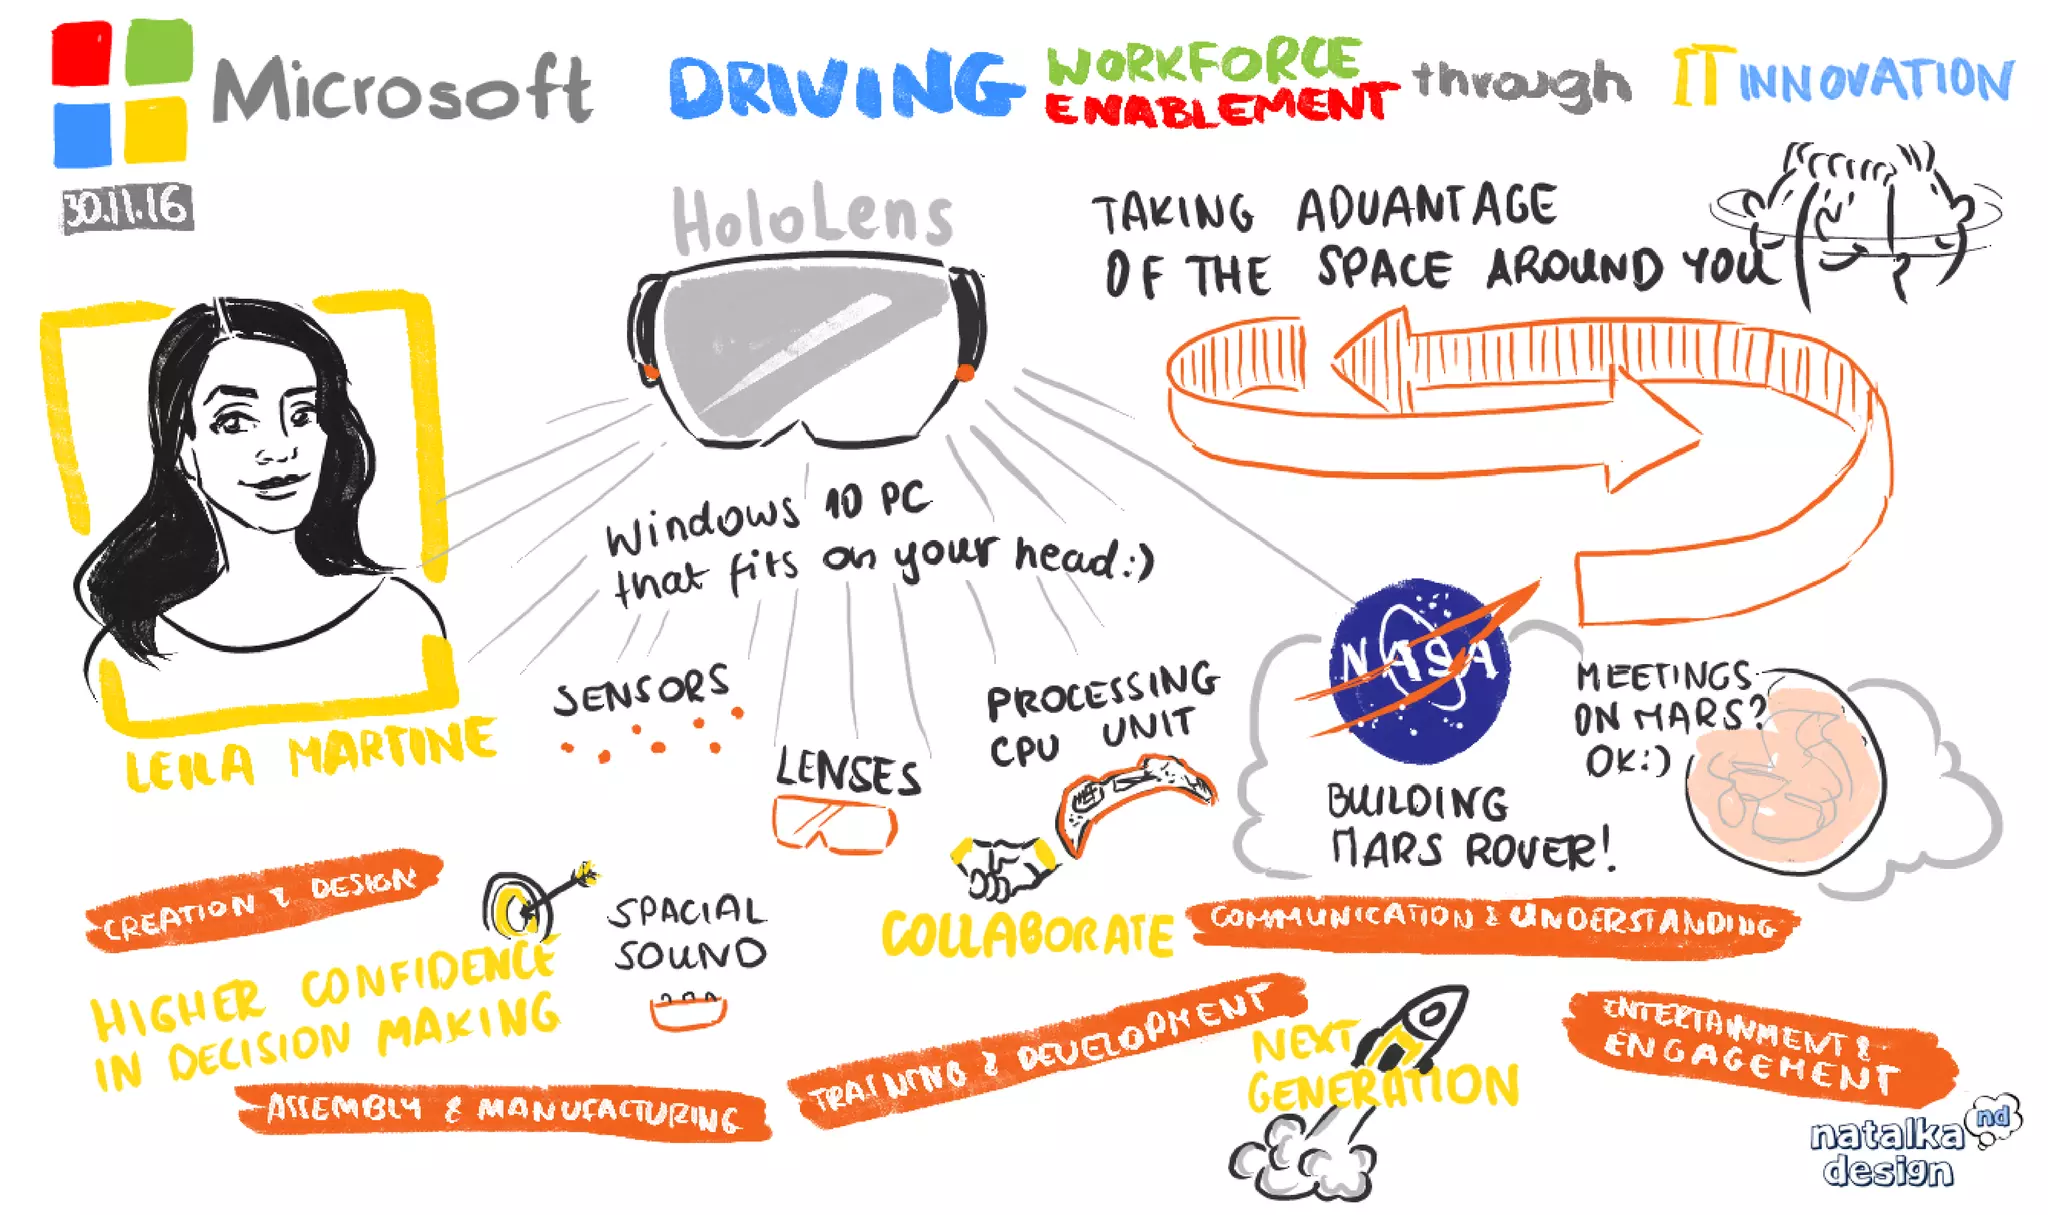 Microsoft
DRIVING WORKFORCE ENABLEMENT through IT INNOVATION
30.11.16
HoloLens
TAKING ADVANTAGE
OF THE SPACE AROUND YOU
Windows 10 PC
that fits on your head:)
LEILA MARTINE
SENSORS
LENSES
PROCESSING
CPU UNIT
NASA
BUILDING
MARS ROVER!
MEETINGS
ON MARS?
OK:)
CREATION & DESIGN
HIGHER CONFIDENCE
IN DECISION MAKING
SPACIAL
SOUND
COLLABORATE
COMMUNICATION & UNDERSTANDING
ASSEMBLY & MANUFACTURING
TRAINING & DEVELOPMENT
NEXT
GENERATION
ENTERTAINMENT &
ENGAGEMENT
natalka
design
nd